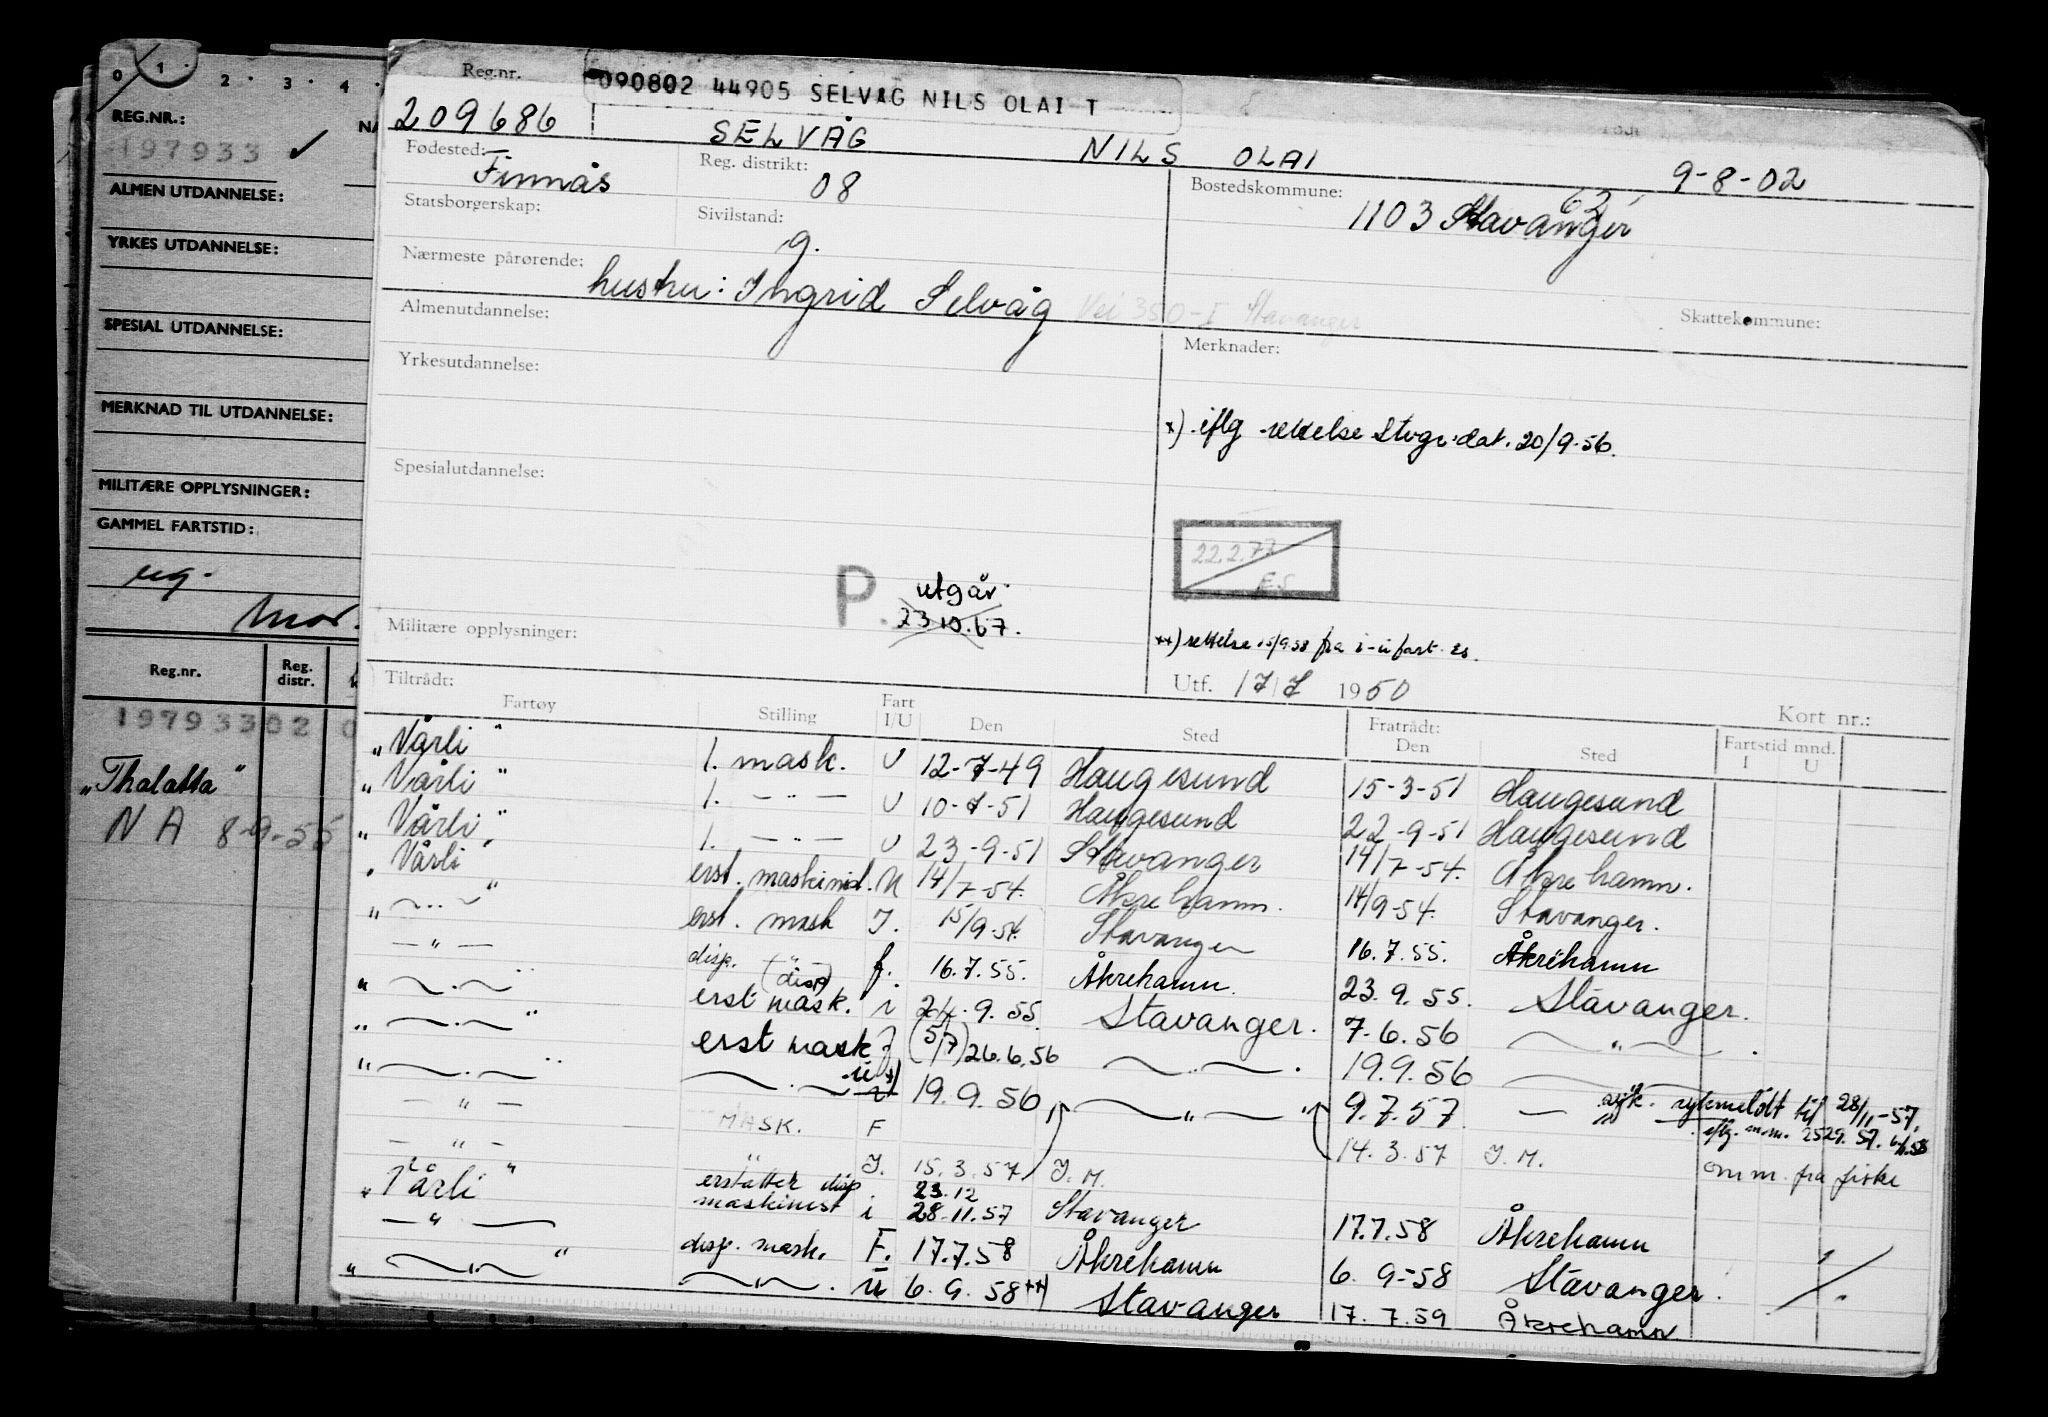 0 1 2 3 4
REG.NR.: NA
197933 ✓
ALMEN UTDANNELSE:
YRKES UTDANNELSE:
SPESIAL UTDANNELSE:
MERKNAD TIL UTDANNELSE:
MILITÆRE OPPLYSNINGER:
GAMMEL FARTSTID:
ug.
Reg.nr. Reg. distr.
19793302 0
„Thalatta"
NA 8-9-55
Reg.nr. 090802 44905 SELVÅG NILS OLAI T
209686 SELVÅG NILS OLAI 9-8-02
Fødested: Finnås Reg. distrikt: 08 Bostedskommune: 1103 Stavanger
Statsborgerskap: Sivilstand: g.
Nærmeste pårørende: hustru: Ingrid Selvåg Vei 350-I Stavanger
Almenutdannelse: Skattekommune:
Yrkesutdannelse: Merknader:
*) iflg rettelse Stvgr. dat. 20/9-56.
Spesialutdannelse:
22.2.77
ES
P. utgår
23.10.67.
Militære opplysninger: **) rettelse 15/9.58 fra i-u fart. Es.
Utf. 17/7 1950
Tiltrådt: Fratrådt: Kort nr.:
Fartøy Stilling Fart I/U Den Sted Den Sted Fartstid mnd. I U
„Vårli" 1. mask. U 12-7-49 Haugesund 15-3-51 Haugesund
„Vårli" 1. — „ — U 10-7-51 Haugesund 22-9-51 Haugesund
„Vårli" 1. — „ — U 23-9-51 Stavanger 14/7-54. Åkrehamn.
„Vårli" erst. maskinist. U 14/7-54. Åkrehamn. 14/9-54. Stavanger.
„ — „ — " erst. mask I. 15/9-54. Stavanger 16.7.55. Åkrehamn
— „ — disp. — „ — f. 16.7.55. Åkrehamn. 23.9.55. Stavanger.
„ — „ — " erst mask. (disp) i 24.9.55. Stavanger. 7.6.56 — „ — .
„ — „ — " erst mask I (5/7) 26.6.56 — „ — . 19.9.56 — „ —
„ — „ — " — „ — u *) 19.9.56 — „ — 9.7.57 — „ — syk. sykmeldt til 28/11-57,
— „ — MASK. F 14.3.57 I.M. omm. fra fiske
— „ — „ I. 15.3.57 I.M.
„Vårli" erstatter disp maskinist i 23.12 28.11.57 Stavanger 17.7.58 Åkrehamn
— „ — disp. mask. F. 17.7.58 Åkrehamn 6.9-58 Stavanger.
„ — „ — " — „ — . u 6.9.58 **) Stavanger 17.7.59 Åkrehamn